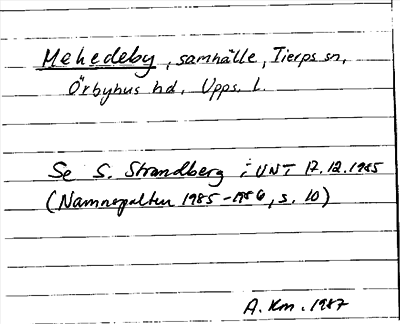 Mehedeby, samhälle, Tierps sn,
Örbyhus hd, Upps. l.
Se S. Strandberg i UNT 17.12.1985
(Namnspalten 1985-1986, s. 10)
A. Km. 1987